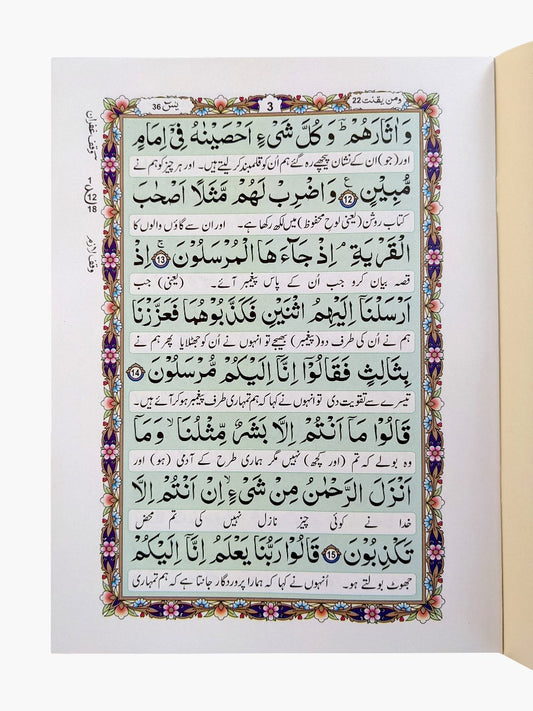 یٰسٓ 36
3
ومن یقنت 22
وَاٰثَارَهُمْ ؕ وَكُلَّ شَیْءٍ اَحْصَیْنٰهُ فِیْۤ اِمَامٍ
اور (جو) ان کے نشان پیچھے رہ گئے ہم اُن کو قلمبند کر لیتے ہیں۔ اور ہر چیز کو ہم نے
مُّبِیْنٍ 12 ع وَاضْرِبْ لَهُمْ مَّثَلًا اَصْحٰبَ
کتاب روشن (یعنی لوح محفوظ) میں لکھ رکھا ہے۔ اور ان سے گاؤں والوں کا
الْقَرْیَةِ ۘ اِذْ جَآءَهَا الْمُرْسَلُوْنَ 13 اِذْ
قصہ بیان کرو جب اُن کے پاس پیغمبر آئے۔ (یعنی) جب
اَرْسَلْنَاۤ اِلَیْهِمُ اثْنَیْنِ فَكَذَّبُوْهُمَا فَعَزَّزْنَا
ہم نے اُن کی طرف دو (پیغمبر) بھیجے تو انہوں نے اُن کو جھٹلایا پھر ہم نے
بِثَالِثٍ فَقَالُوْۤا اِنَّاۤ اِلَیْكُمْ مُّرْسَلُوْنَ 14
تیسرے سے تقویت دی تو انہوں نے کہا کہ ہم تمہاری طرف پیغمبر ہو کر آئے ہیں۔
قَالُوْا مَاۤ اَنْتُمْ اِلَّا بَشَرٌ مِّثْلُنَا ۙ وَمَاۤ
وہ بولے کہ تم (اور کچھ) نہیں مگر ہماری طرح کے آدمی (ہو) اور
اَنْزَلَ الرَّحْمٰنُ مِنْ شَیْءٍ ۙ اِنْ اَنْتُمْ اِلَّا
خدا نے کوئی چیز نازل نہیں کی تم محض
تَكْذِبُوْنَ 15 قَالُوْا رَبُّنَا یَعْلَمُ اِنَّاۤ اِلَیْكُمْ
جھوٹ بولتے ہو۔ اُنہوں نے کہا کہ ہمارا پروردگار جانتا ہے کہ ہم تمہاری
وقف غفران
1
ع 12
18
وقف لازم